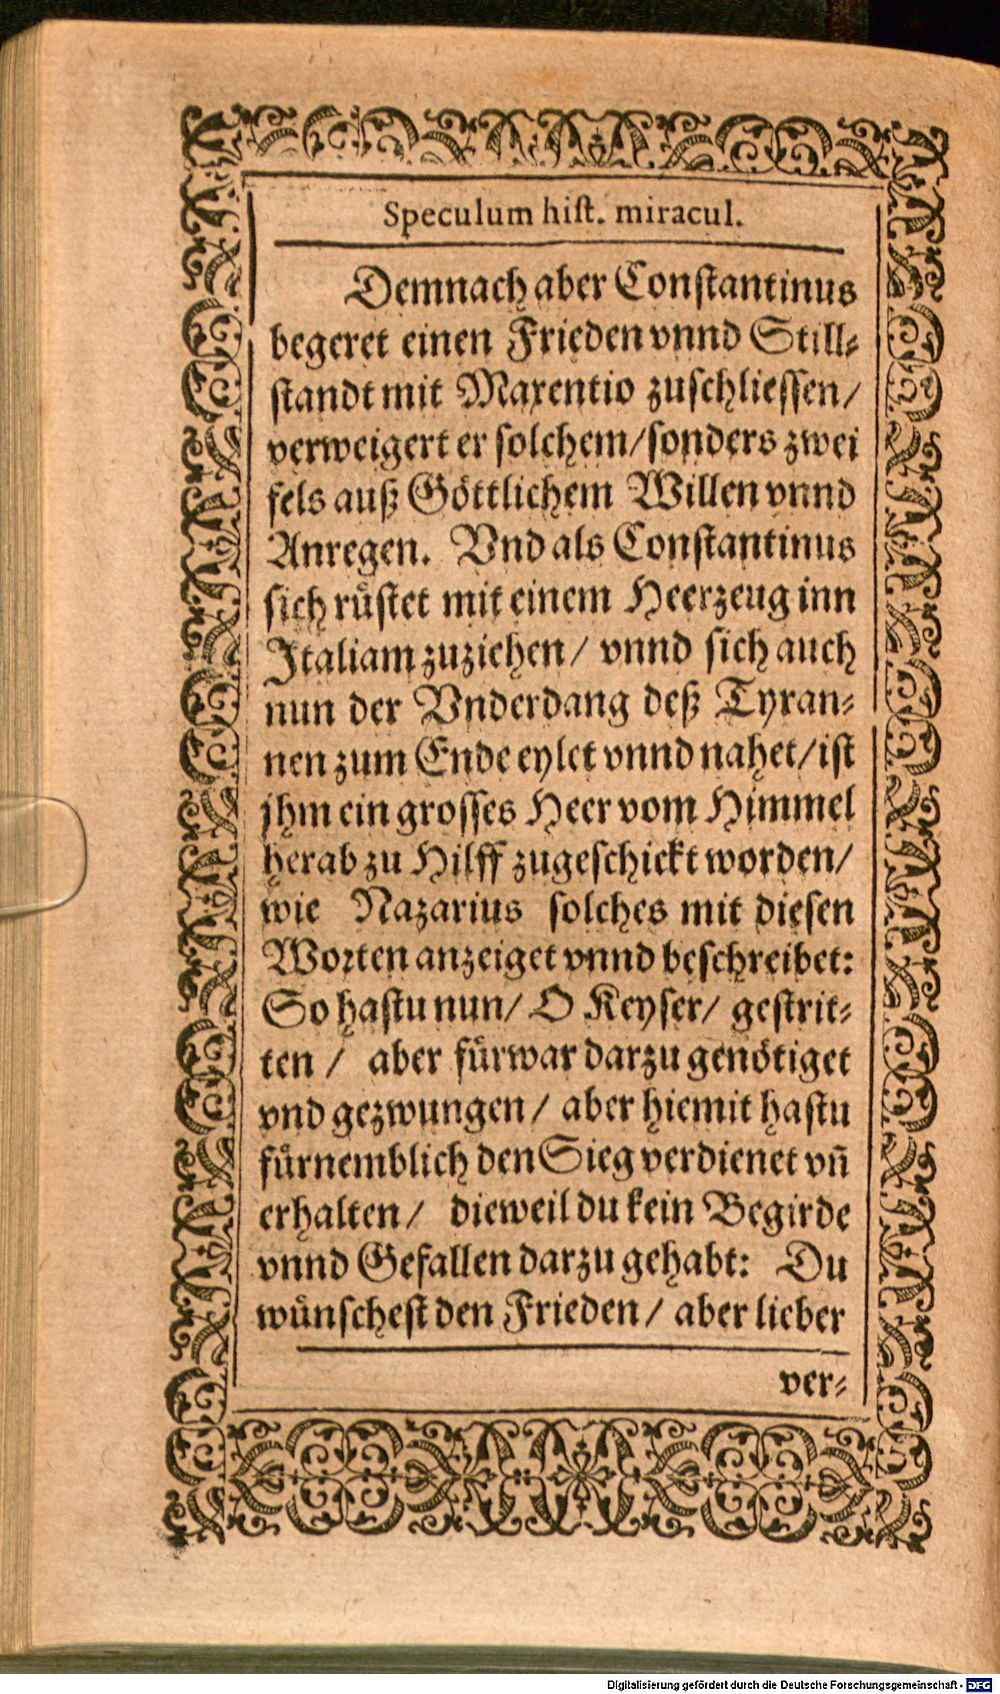 Speculum hist. miracul.
Demnach aber Constantinus
begeret einen Frieden vnnd Still⸗
standt mit Maxentio zuschliessen/
verweigert er solchem/sonders zwei
fels auß Göttlichem Willen vnnd
Anregen. Vnd als Constantinus
sich rüstet mit einem Heerzeug inn
Italiam zuziehen/ vnnd sich auch
nun der Vnderdang deß Tyran⸗
nen zum Ende eylet vnnd nahet/ist
jhm ein grosses Heer vom Himmel
herab zu Hilff zugeschickt worden/
wie Nazarius solches mit diesen
Worten anzeiget vnnd beschreibet:
So hastu nun/ O Keyser/ gestrit⸗
ten / aber fürwar darzu genötiget
vnd gezwungen/ aber hiemit hastu
fürnemblich den Sieg verdienet vñ
erhalten/ dieweil du kein Begirde
vnnd Gefallen darzu gehabt: Du
wünschest den Frieden/ aber lieber
ver⸗
Digitalisierung gefördert durch die Deutsche Forschungsgemeinschaft - DFG